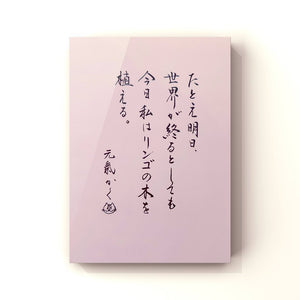 たとえ明日、
世界が終るとしても
今日私はリンゴの木を
植える。
元氣かく